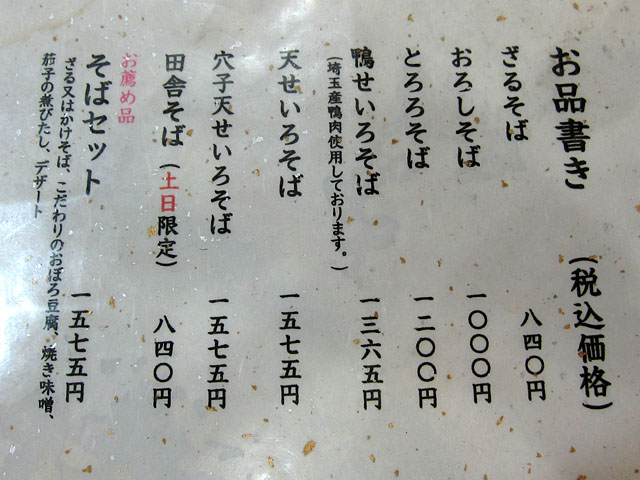 お品書き (税込価格)
ざるそば 八四〇円
おろしそば 一〇〇〇円
とろろそば 一二〇〇円
鴨せいろそば 一三六五円
(埼玉産鴨肉使用しております。)
天せいろそば 一五七五円
穴子天せいろそば 一五七五円
田舎そば(土日限定) 八四〇円
お薦め品
そばセット 一五七五円
ざる又はかけそば、こだわりのおぼろ豆腐、焼き味噌、
茄子の煮びたし、デザート